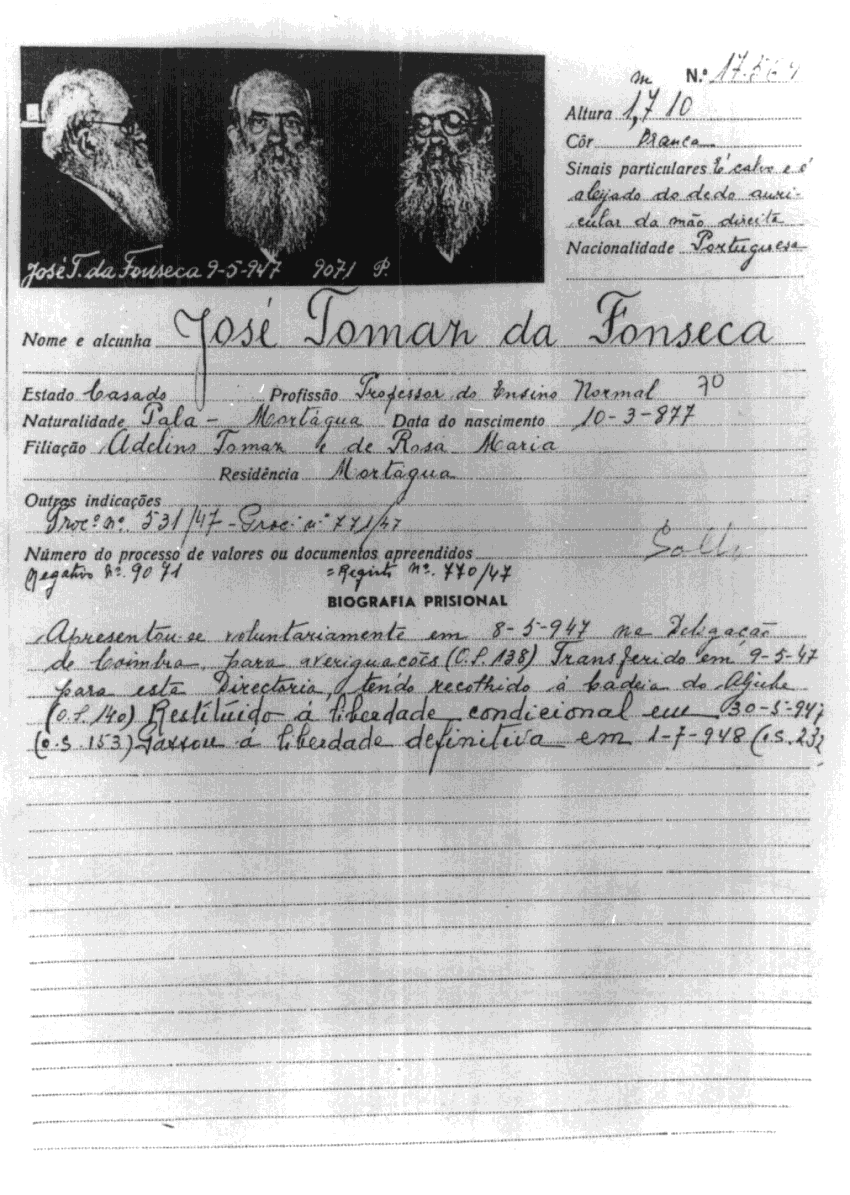 José T. da Fonseca 9-5-947 9071 P.
N.º 17.569
m
Altura 1,710
Côr Branca
Sinais particulares É calvo e é
aleijado do dedo auri-
cular da mão direita
Nacionalidade Portuguesa
Nome e alcunha José Tomaz da Fonseca
Estado Casado Profissão Professor do Ensino Normal 70
Naturalidade Pala - Mortágua Data do nascimento 10-3-877
Filiação Adelino Tomaz e de Rosa Maria
Residência Mortágua
Outras indicações
Proc.º nº. 531/47 - Proc.º nº 771/47
Número do processo de valores ou documentos apreendidos
Negativo Nº. 9071 = Registo nº. 770/47
BIOGRAFIA PRISIONAL
Apresentou-se voluntariamente em 8-5-947 na Delegação
de Coimbra, para averiguações (O.S. 138) Transferido em 9-5-47
para esta Directoria, tendo recolhido á Cadeia do Aljube
(O.S. 140) Restituído á liberdade condicional em 30-5-947
(O.S. 153) Passou á liberdade definitiva em 1-7-948 (O.S. 232